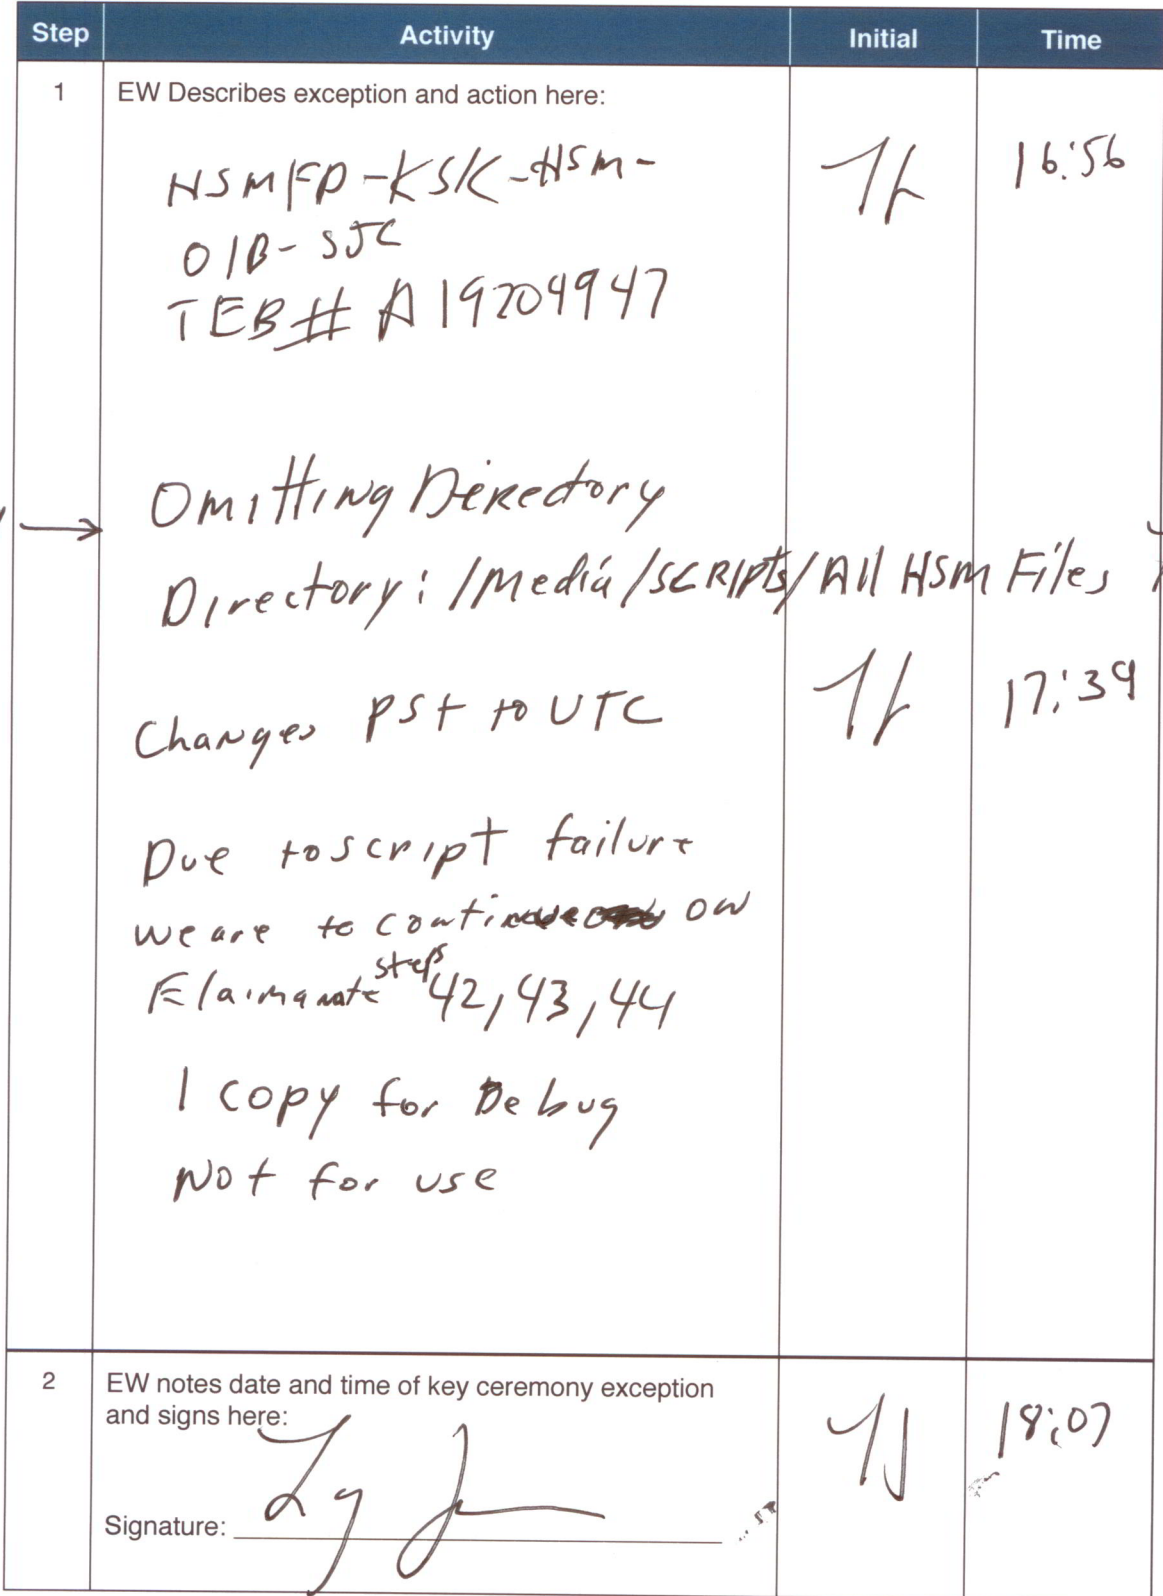 Step Activity Initial Time
1 EW Describes exception and action here:
HSMFD-KSK-HSM-
01B-SJC
TEB# A19204947
16:56
Omitting Directory
Directory: /Media/SCRIPts/All HSM Files
Changes PST to UTC
17:39
Due to script failure
we are to continue on
Elaimanate steps 42, 43, 44
1 copy for Debug
Not for use
2 EW notes date and time of key ceremony exception
and signs here:
18:07
Signature: